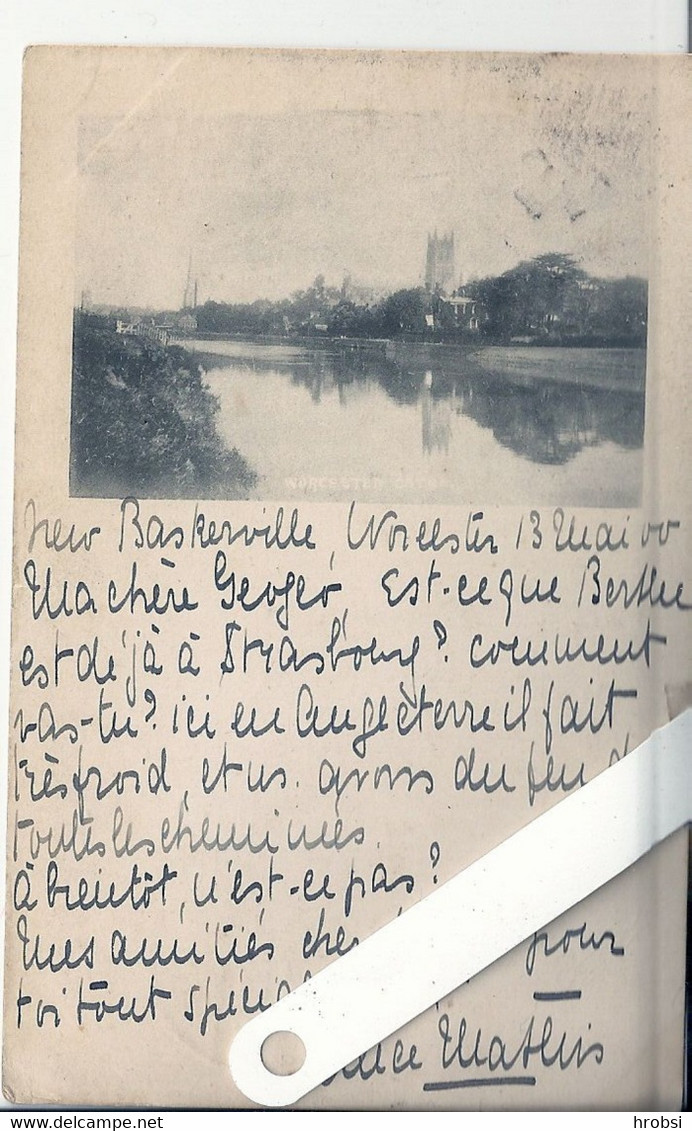 WORCESTER
New Baskerville, Worcester 13 Mai 00
Ma chère Geogeo, Est-ce que Berthe
est déjà à Strasbourg? comment
vas-tu? ici en Angleterre il fait
très froid, et ns. avons du feu d
toutes les cheminées.
à bientôt, n'est-ce pas?
Mes amitiés che pour
toi tout spécial
Mathis
hrobsi